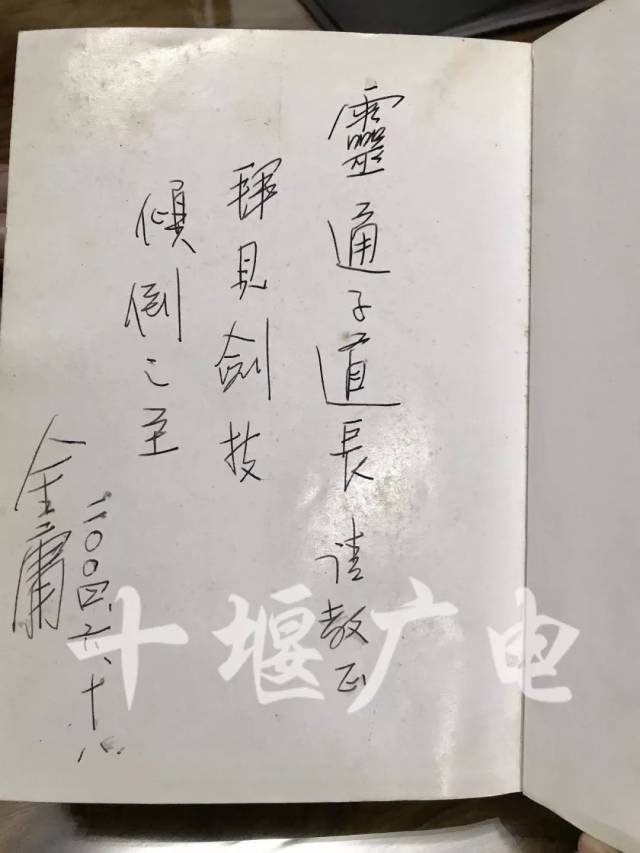 靈通子道長 请教正
見劍技
傾倒之至
二〇〇四、六、十八
金庸
十堰广电